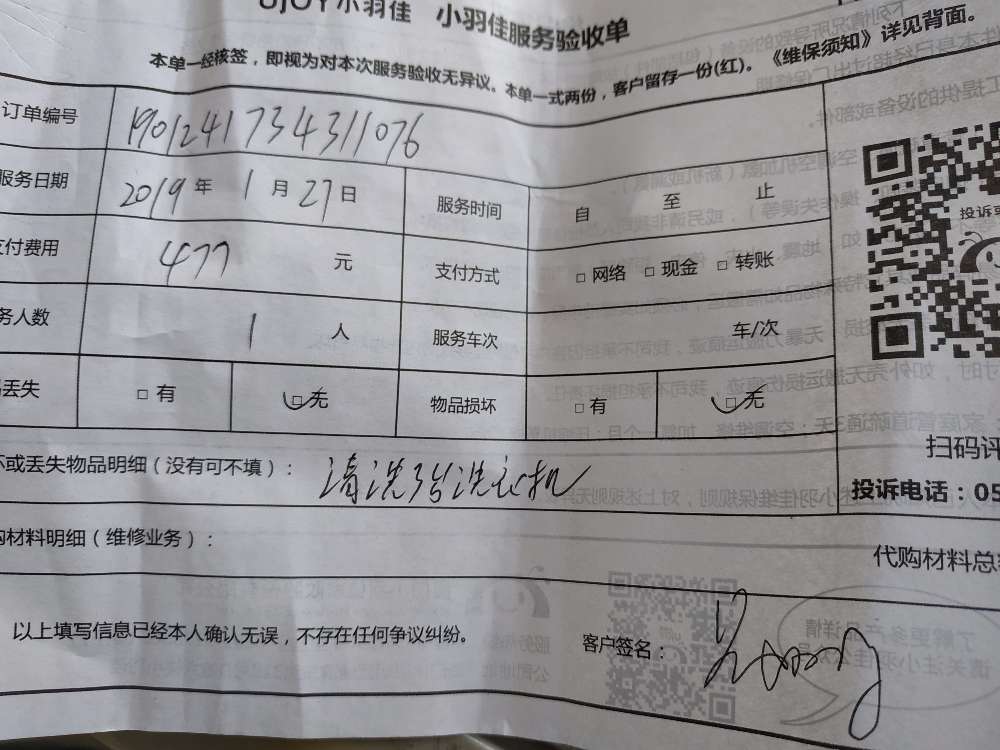 UJOY小羽佳 小羽佳服务验收单
本单一经核签，即视为对本次服务验收无异议。本单一式两份，客户留存一份(红)。《维保须知》详见背面。
订单编号 1901241734311076
服务日期 2019年1月27日 服务时间 自 至 止
支付费用 477 元 支付方式 □网络 □现金 □转账
务人数 1 人 服务车次 车/次
丢失 □有 □无 物品损坏 □有 □无
坏或丢失物品明细（没有可不填）： 清洗 洗衣机
购材料明细（维修业务）：
代购材料总
以上填写信息已经本人确认无误，不存在任何争议纠纷。 客户签名：
投诉
扫码评
投诉电话：05